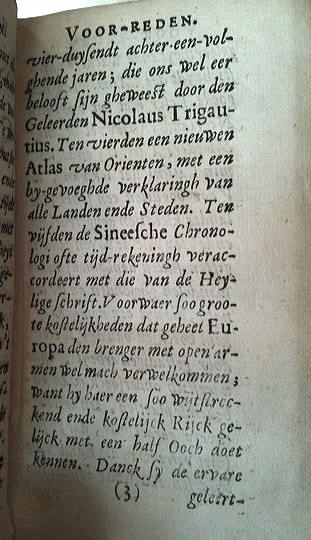 VOOR-REDEN.
vier-duysendt achter-een-vol-
ghende jaren; die ons wel eer
belooft sijn gheweest door den
Geleerden Nicolaus Trigau-
tius. Ten vierden een nieuwen
Atlas van Orienten, met een
by-gevoeghde verklaringh van
alle Landen ende Steden. Ten
vijfden de Sineesche Chrono-
logi ofte tijd-rekeningh verac-
cordeert met die van de Hey-
lige schrift. Voorwaer soo groo-
te kostelijkheden dat geheel Eu-
ropa den brenger met open ar-
men wel mach verwelkommen;
want by haer een soo wijtstrec-
kend ende kostelijck Rijck ge-
lijck met een half Ooch doet
kennen. Danck sy de ervare
(3) geleert-